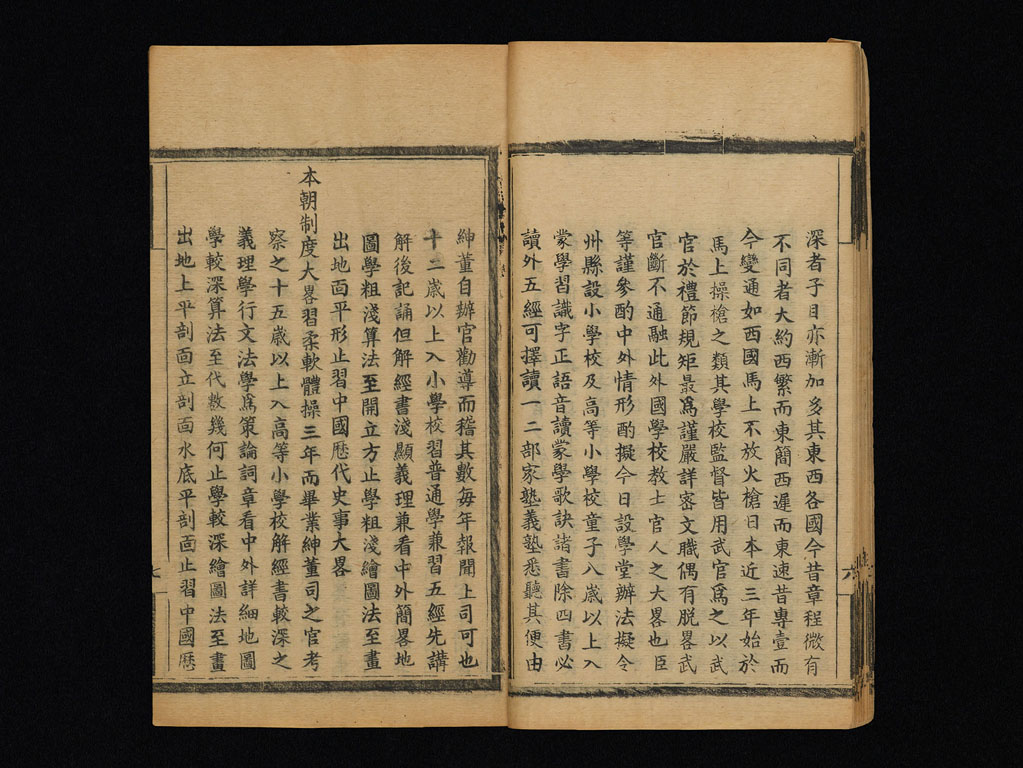 深者子目亦漸加多其東西各國今昔章程微有
不同者大約西繁而東簡西遲而東速昔專壹而
今變通如西國馬上不放火槍日本近三年始於
馬上操槍之類其學校監督皆用武官爲之以武
官於禮節規矩最爲謹嚴詳密文職偶有脫畧武
官斷不通融此外國學校教士官人之大畧也臣
等謹參酌中外情形酌擬今日設學堂辦法擬令
州縣設小學校及高等小學校童子八歲以上入
蒙學習識字正語音讀蒙學歌訣諸書除四書必
讀外五經可擇讀一二部家塾義塾悉聽其便由
紳董自辦官勸導而稽其數每年報聞上司可也
十二歲以上入小學校習普通學兼習五經先講
解後記誦但解經書淺顯義理兼看中外簡畧地
圖學粗淺算法至開立方止學粗淺繪圖法至畫
出地面平形止習中國歷代史事大畧
本朝制度大畧習柔軟體操三年而畢業紳董司之官考
察之十五歲以上入高等小學校解經書較深之
義理學行文法學爲策論詞章看中外詳細地圖
學較深算法至代數幾何止學較深繪圖法至畫
出地上平剖面立剖面水底平剖面止習中國歷
六